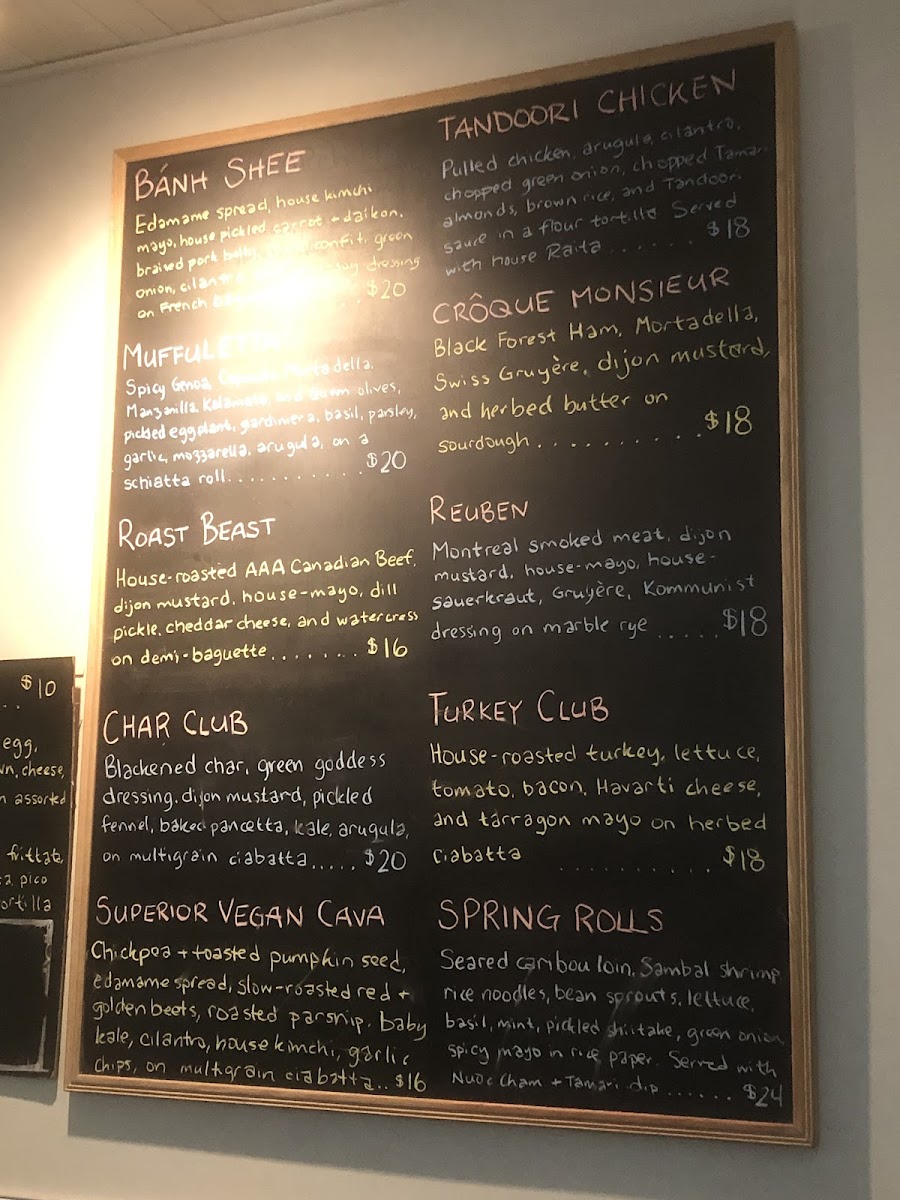 BÁNH SHEE
Edamame spread, house kimchi
mayo, house pickled carrot + daikon,
braised pork belly, confit, green
onion, cilantro dressing
on French $20
MUFFULETTA
Spicy Genoa, Mortadella,
Manzanilla, Kalamata, and Queen olives,
pickled eggplant, gardiniera, basil, parsley,
garlic, mozzarella, arugula, on a
schiatta roll............$20
ROAST BEAST
House-roasted AAA Canadian Beef,
dijon mustard, house-mayo, dill
pickle, cheddar cheese, and watercress
on demi-baguette........$16
CHAR CLUB
Blackened char, green goddess
dressing, dijon mustard, pickled
fennel, baked pancetta, kale, arugula,
on multigrain ciabatta.....$20
SUPERIOR VEGAN CAVA
Chickpea + toasted pumpkin seed,
edamame spread, slow-roasted red +
golden beets, roasted parsnip, baby
kale, cilantro, house kimchi, garlic
chips, on multigrain ciabatta..$16
TANDOORI CHICKEN
Pulled chicken, arugula, cilantro,
chopped green onion, chopped Tamari
almonds, brown rice, and Tandoori
sauce in a flour tortilla. Served
with House Raita.......$18
CRÔQUE MONSIEUR
Black Forest Ham, Mortadella,
Swiss Gruyère, dijon mustard,
and herbed butter on
sourdough...........$18
REUBEN
Montreal smoked meat, dijon
mustard, house-mayo, house-
sauerkraut, Gruyère, Kommunist
dressing on marble rye.....$18
TURKEY CLUB
House-roasted turkey, lettuce,
tomato, bacon, Havarti cheese,
and tarragon mayo on herbed
ciabatta ..........$18
SPRING ROLLS
Seared caribou loin, Sambal shrimp,
rice noodles, bean sprouts, lettuce,
basil, mint, pickled shiitake, green onion,
spicy mayo in rice paper. Served with
Nuoc Cham + Tamari dip......$24
$10
egg,
cheese,
assorted
frittata,
pico